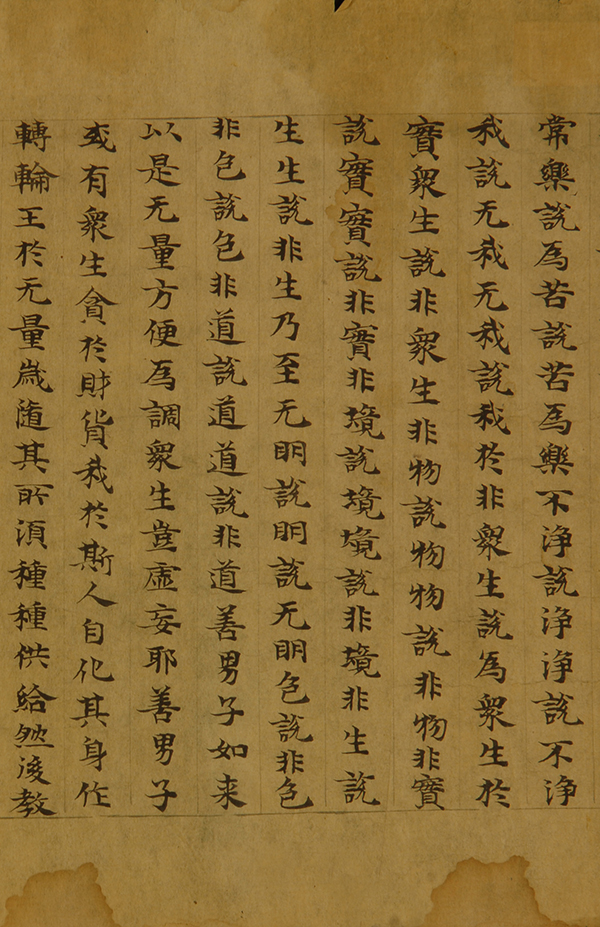 常樂說為苦說苦為樂不浄說浄浄說不浄
我說无我无我說我於非衆生說為衆生於
寶衆生說非衆生非物說物物說非物非寶
說寶寶說非寶非境說境境說非境非生說
生生說非生乃至无明說明說无明色說非色
非色說色非道說道道說非道善男子如来
以是无量方便為調衆生豈虛妄耶善男子
或有衆生貪於財貨我於斯人自化其身作
轉輪王於无量歲随其所湏種種供給然後教